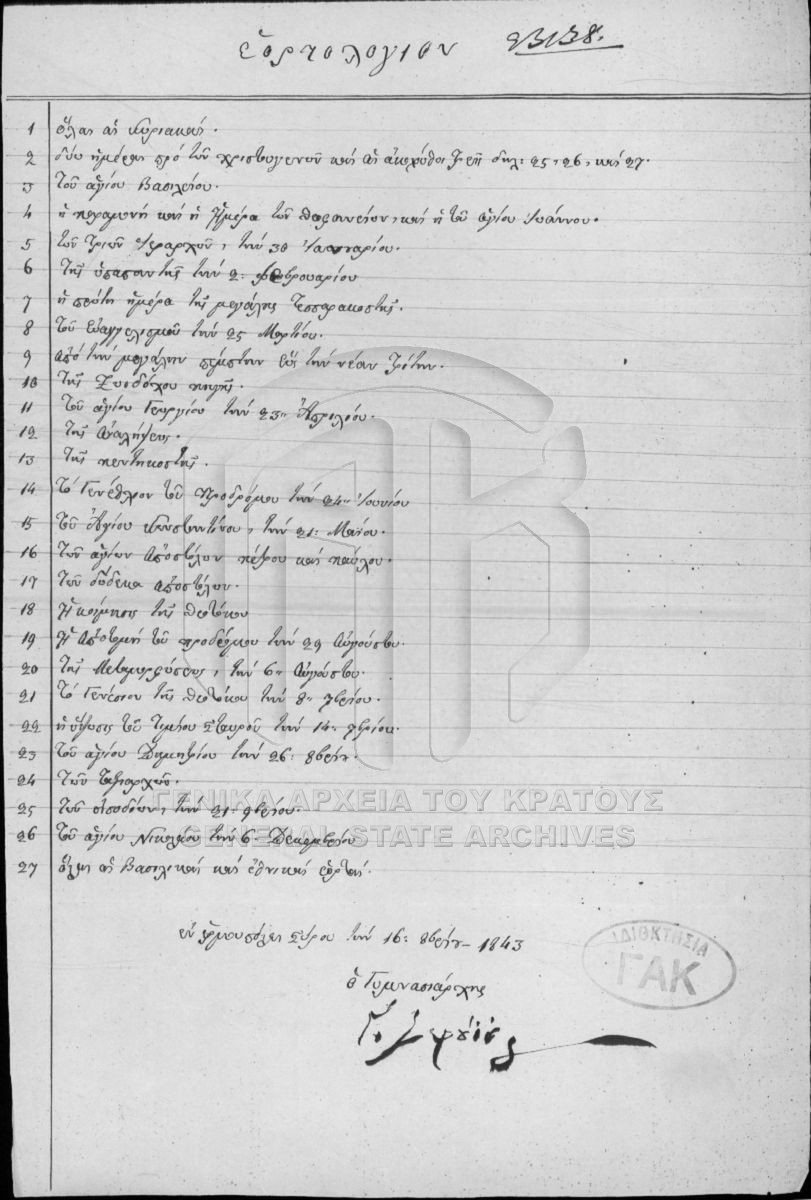 ἑορτολόγιον 23138.
1 ὅλαι αἱ Κυριακαί.
2 δύω ἡμέραι πρὸ τῶν χριστουγέννων καὶ αἱ ἀκόλουθοι δηλ: 25, 26, καὶ 27.
3 Τοῦ ἁγίου Βασιλείου.
4 ἡ παραμονὴ καὶ ἡ ἡμέρα τῶν θεοφανείων, καὶ ἡ τοῦ ἁγίου Ἰωάννου.
5 τῶν Τριῶν Ἱεραρχῶν, τὴν 30 Ἰαννουαρίου.
6 Τῆς ὑπαπαντῆς τὴν 2: Φεβρουαρίου
7 ἡ πρώτη ἡμέρα τῆς μεγάλης Τεσσαρακοστῆς.
8 Τοῦ εὐαγγελισμοῦ τὴν 25 Μαρτίου.
9 Ἀπὸ τὴν μεγάλην πέμπτην ἕως τὴν νέαν Τρίτην.
10 Τῆς Ζωοδόχου πηγῆς.
11 Τοῦ ἁγίου Γεωργίου τὴν 23" Ἀπριλίου.
12 Τῆς Ἀναλήψεως.
13 Τῆς πεντηκοστῆς.
14 Τὸ Γενέθλιον τοῦ Προδρόμου τὴν 24" Ἰουνίου
15 Τοῦ Ἁγίου Κωνσταντίνου, τὴν 21: Μαΐου.
16 Τῶν ἁγίων ἀποστόλων πέτρου καὶ παύλου.
17 Τῶν δώδεκα ἀποστόλων.
18 Ἡ κοίμησις τῆς θεοτόκου
19 Ἡ Ἀποτομὴ τοῦ προδρόμου τὴν 29 Αὐγούστου.
20 Τῆς Μεταμορφώσεως, τὴν 6" Αὐγούστου.
21 Τὸ Γενέσιον τῆς θεοτόκου τὴν 8" 7βρίου.
22 ἡ ὕψωσις τοῦ Τιμίου Σταυροῦ τὴν 14" 7βρίου.
23 Τοῦ ἁγίου Δημητρίου τὴν 26: 8βρίου.
24 Τῶν Ταξιαρχῶν.
25 Τῶν εἰσοδίων, τὴν 21: 9βρίου.
26 Τοῦ ἁγίου Νικολάου τὴν 6 Δεκεμβρίου
27 ὅλαι αἱ Βασιλικαὶ καὶ ἐθνικαὶ ἑορταί.
ΓΕΝΙΚΑ ΑΡΧΕΙΑ ΤΟΥ ΚΡΑΤΟΥΣ
GENERAL STATE ARCHIVES
ἐν ἑρμουπόλει Σύρου τὴν 16: 8βρίου 1843
ΙΔΙΟΚΤΗΣΙΑ
ΓΑΚ
ὁ Γυμνασιάρχης